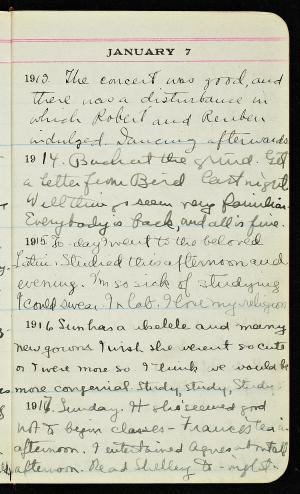 JANUARY 7
1913. The concert was good, and
there was a disturbance in
which Robert and Reuben
indulged. Dancing afterwards
1914. Back at the grind. Got
a letter from Bird last night.
Well them or seem very familiar.
Everybody is back, and all is fine.
1915 To-day I went to the beloved
Latin. Studied this afternoon and
evening. I'm so sick of studying
I could swear. In Lab. I love my religion
1916 Sun has a ukelele and many
new gowns I wish she weren't so cute
or I were more so I think we would be
more congenial. Study, study, Study.
1917. Sunday. It seemed good
not to begin classes - Frances tea in
afternoon. I entertained Agnes
afternoon. Read Shelley to-night.